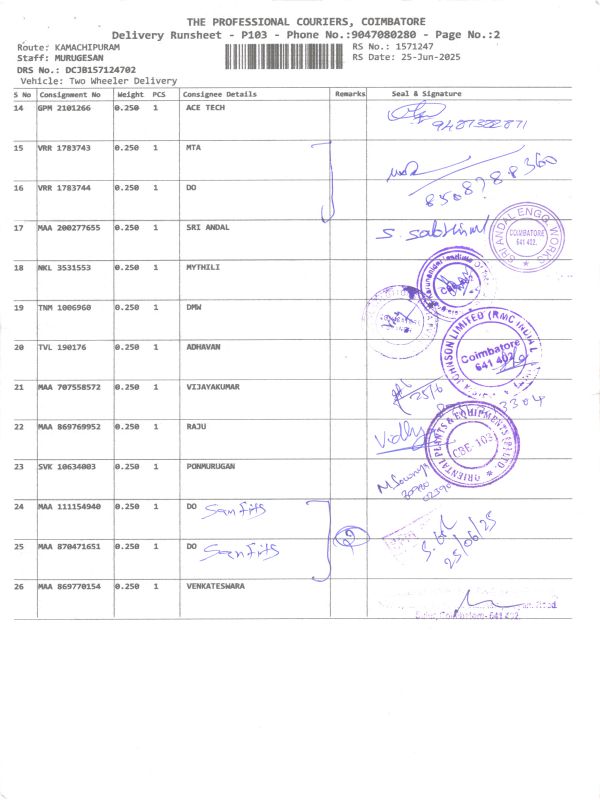 THE PROFESSIONAL COURIERS, COIMBATORE
Delivery Runsheet - P103 - Phone No.:9047080280 - Page No.:2
Route: KAMACHIPURAM RS No.: 1571247
Staff: MURUGESAN RS Date: 25-Jun-2025
DRS No.: DCJB157124702
Vehicle: Two Wheeler Delivery
S No Consignment No Weight PCS Consignee Details Remarks Seal & Signature
14 GPM 2101266 0.250 1 ACE TECH
9487322871
15 VRR 1783743 0.250 1 MTA
8508788360
16 VRR 1783744 0.250 1 DO
17 MAA 200277655 0.250 1 SRI ANDAL
SRI ANDAL ENGG. WORKS
COIMBATORE
641 402.
18 NKL 3531553 0.250 1 MYTHILI
19 TNM 1006960 0.250 1 DMW
20 TVL 190176 0.250 1 ADHAVAN
JOHNSON LIMITED (RMC INDIA
Coimbatore
641 402
21 MAA 707558572 0.250 1 VIJAYAKUMAR
25/6
3304
22 MAA 869769952 0.250 1 RAJU
Vidhya
ORIENTAL PLANTS & EQUIPMENTS (P) LTD
CBE-103
23 SVK 10634003 0.250 1 PONMURUGAN
24 MAA 111154940 0.250 1 DO Sanfits
25 MAA 870471651 0.250 1 DO Sanfits
25/06/25
26 MAA 869770154 0.250 1 VENKATESWARA
Road
Coimbatore-641 402